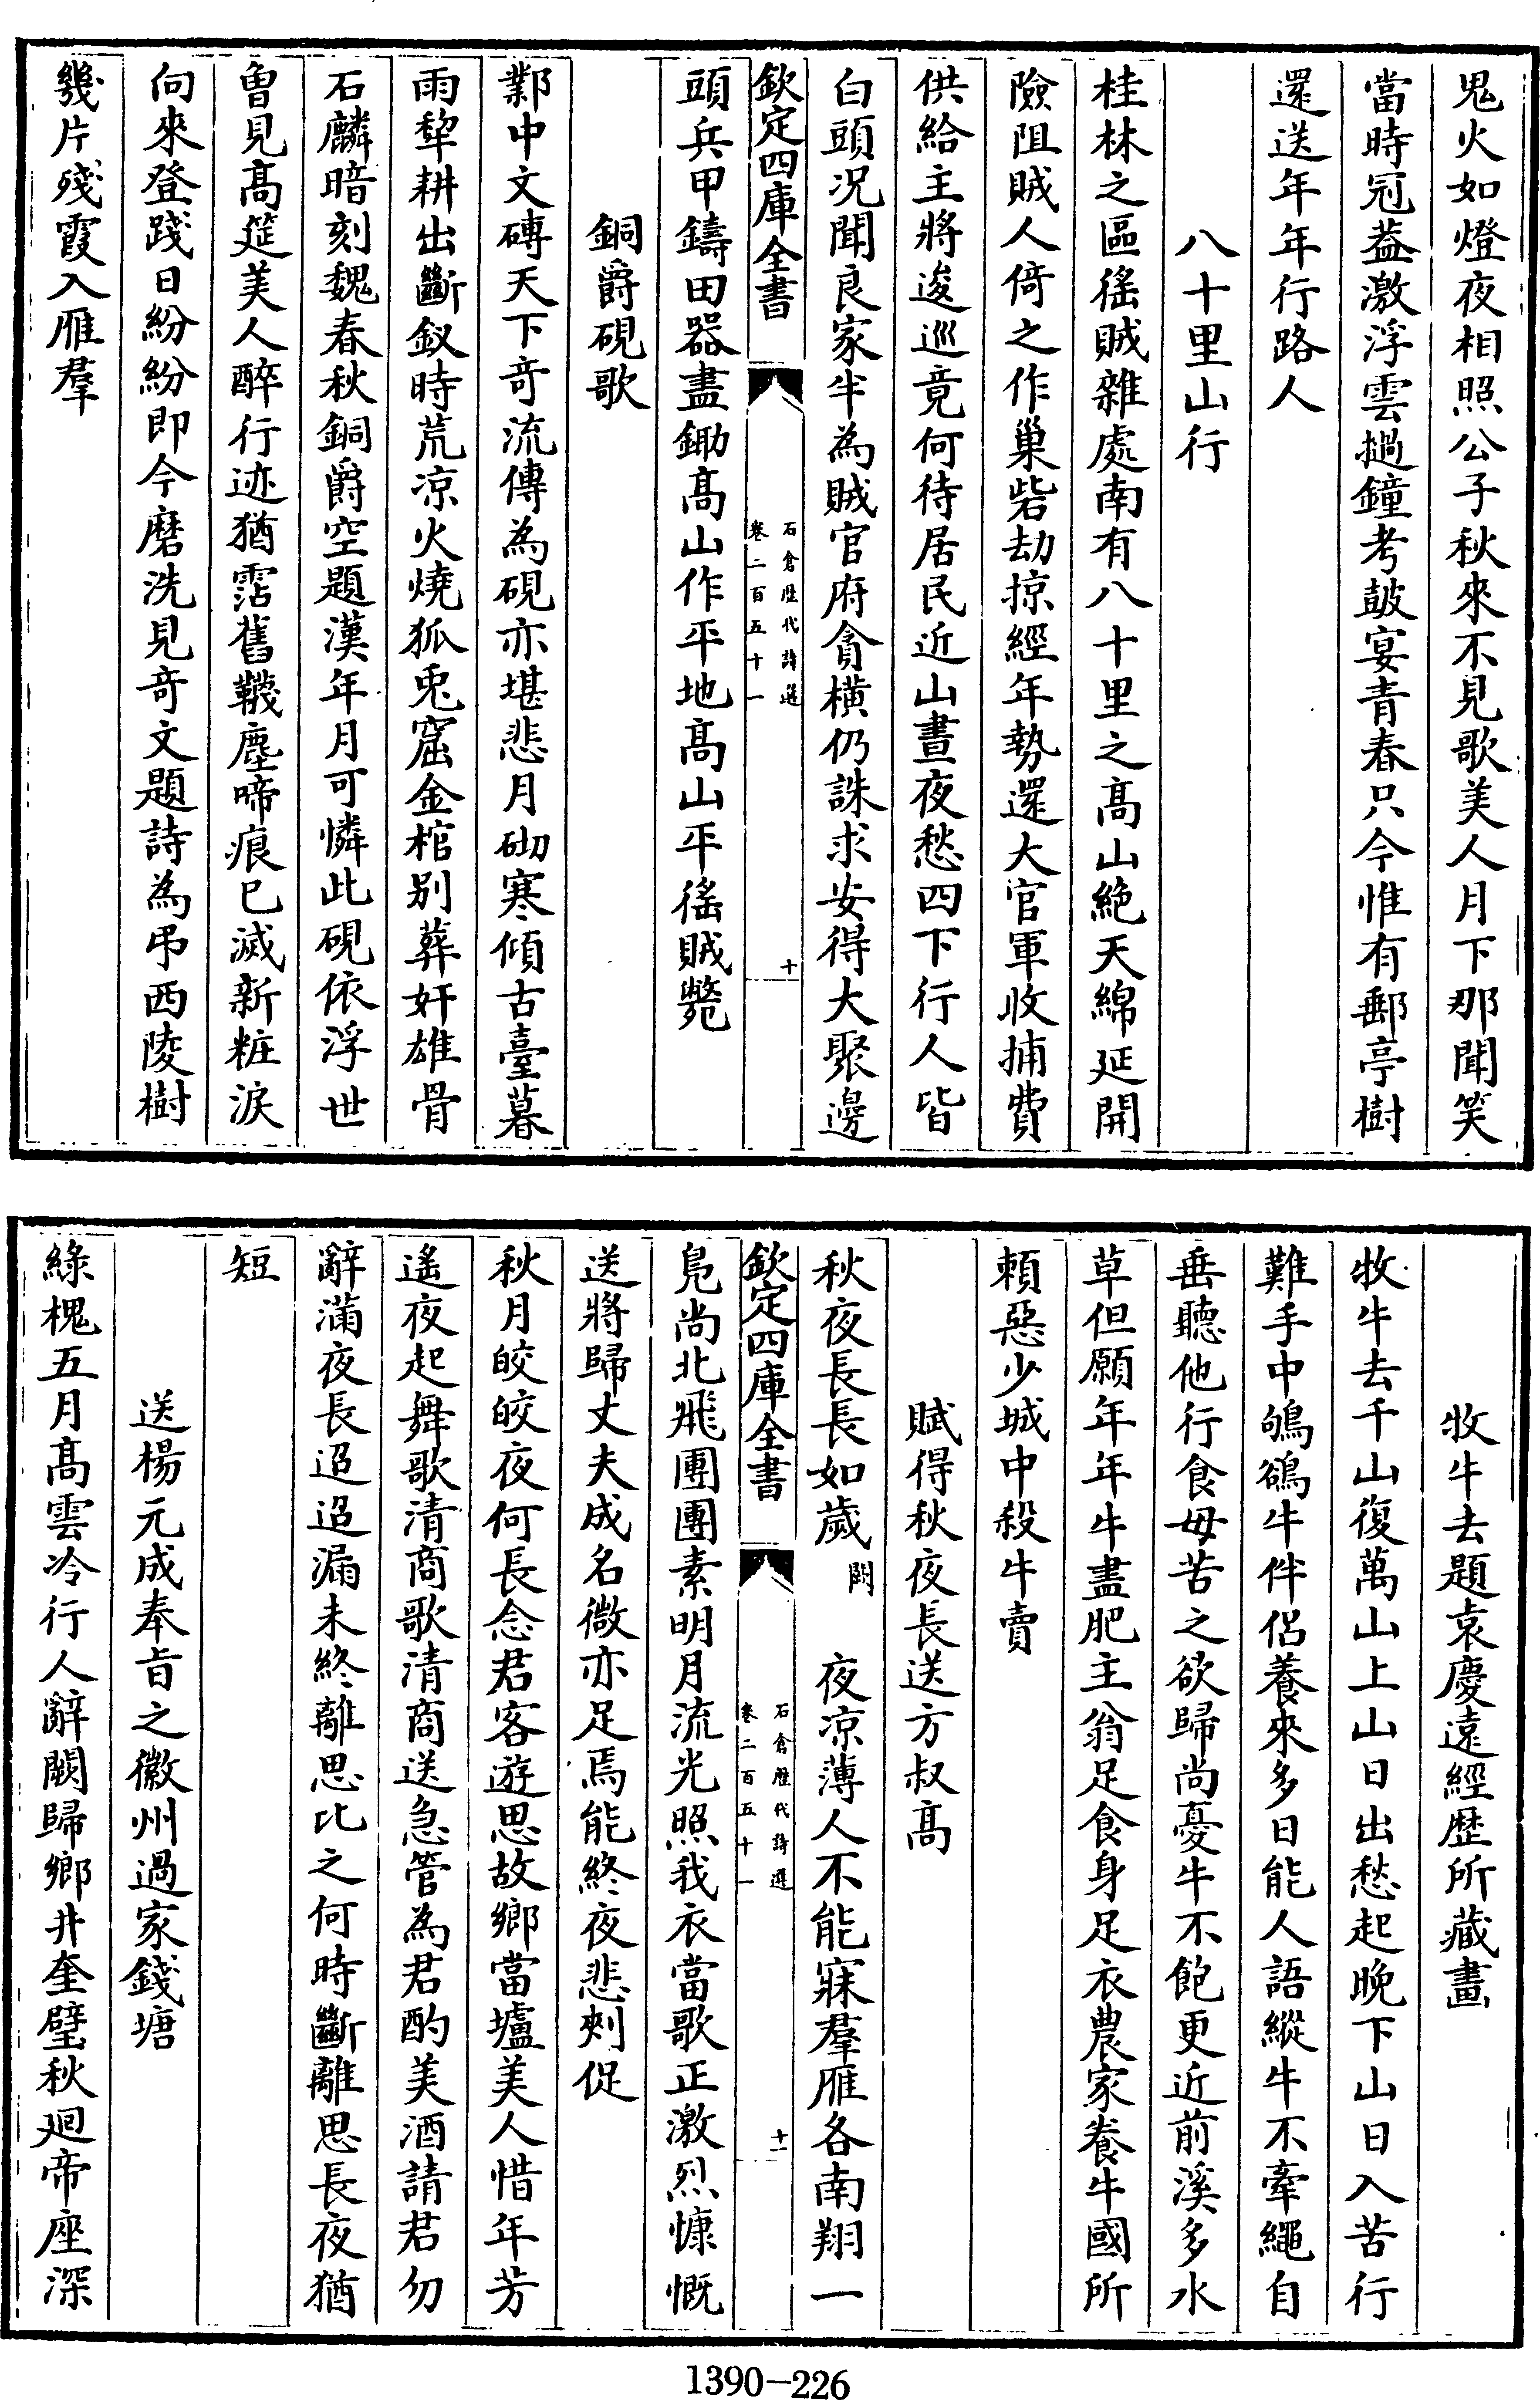 鬼火如燈夜相照公子秋來不見歌美人月下那聞笑
當時冠葢激浮雲撾鐘考鼓宴青春只今惟有郵亭樹
還送年年行路人
八十里山行
桂林之區徭賊雜處南有八十里之髙山絶天綿延開
險阻賊人倚之作巢砦劫掠經年勢還大官軍收捕費
供給主將逡巡竟何待居民近山晝夜愁四下行人皆
白頭况聞良家半為賊官府貪橫仍誅求安得大聚邊
欽定四庫全書
石倉歴代詩選
卷二百五十一
十
頭兵甲鑄田器盡鋤髙山作平地髙山平徭賊斃
銅爵硯歌
鄴中文磚天下竒流傳為硯亦堪悲月砌寒傾古臺暮
雨犂耕出斷釵時荒凉火燒狐兎窟金棺别葬奸雄骨
石麟暗刻魏春秋銅爵空題漢年月可憐此硯依浮世
曽見髙筵美人醉行迹猶霑舊韈塵啼痕已滅新粧淚
向來登踐日紛紛即今磨洗見竒文題詩為弔西陵樹
幾片殘霞入雁羣
牧牛去題袁慶逺經歴所藏畫
牧牛去千山復萬山上山日出愁起晚下山日入苦行
難手中鳹鵒牛伴侣養來多日能人語縱牛不牽繩自
垂聽他行食毋苦之欲歸尚憂牛不飽更近前溪多水
草但願年年牛盡肥主翁足食身足衣農家養牛國所
頼惡少城中殺牛賣
賦得秋夜長送方叔髙
秋夜長長如歲 闕 夜凉薄人不能寐羣雁各南翔一
欽定四庫全書
石倉歴代詩選
卷二百五十一
十一
鳬尚北飛團團素明月流光照我衣當歌正激烈慷慨
送將歸丈夫成名微亦足焉能終夜悲刺促
秋月皎皎夜何長念君客遊思故鄉當壚美人惜年芳
遙夜起舞歌清商歌清商送急管為君酌美酒請君勿
辭滿夜長迢迢漏未終離思比之何時斷離思長夜猶
短
送楊元成奉㫖之徽州過家錢塘
綠槐五月髙雲冷行人辭闕歸鄉井奎璧秋廻帝座深
1390-226